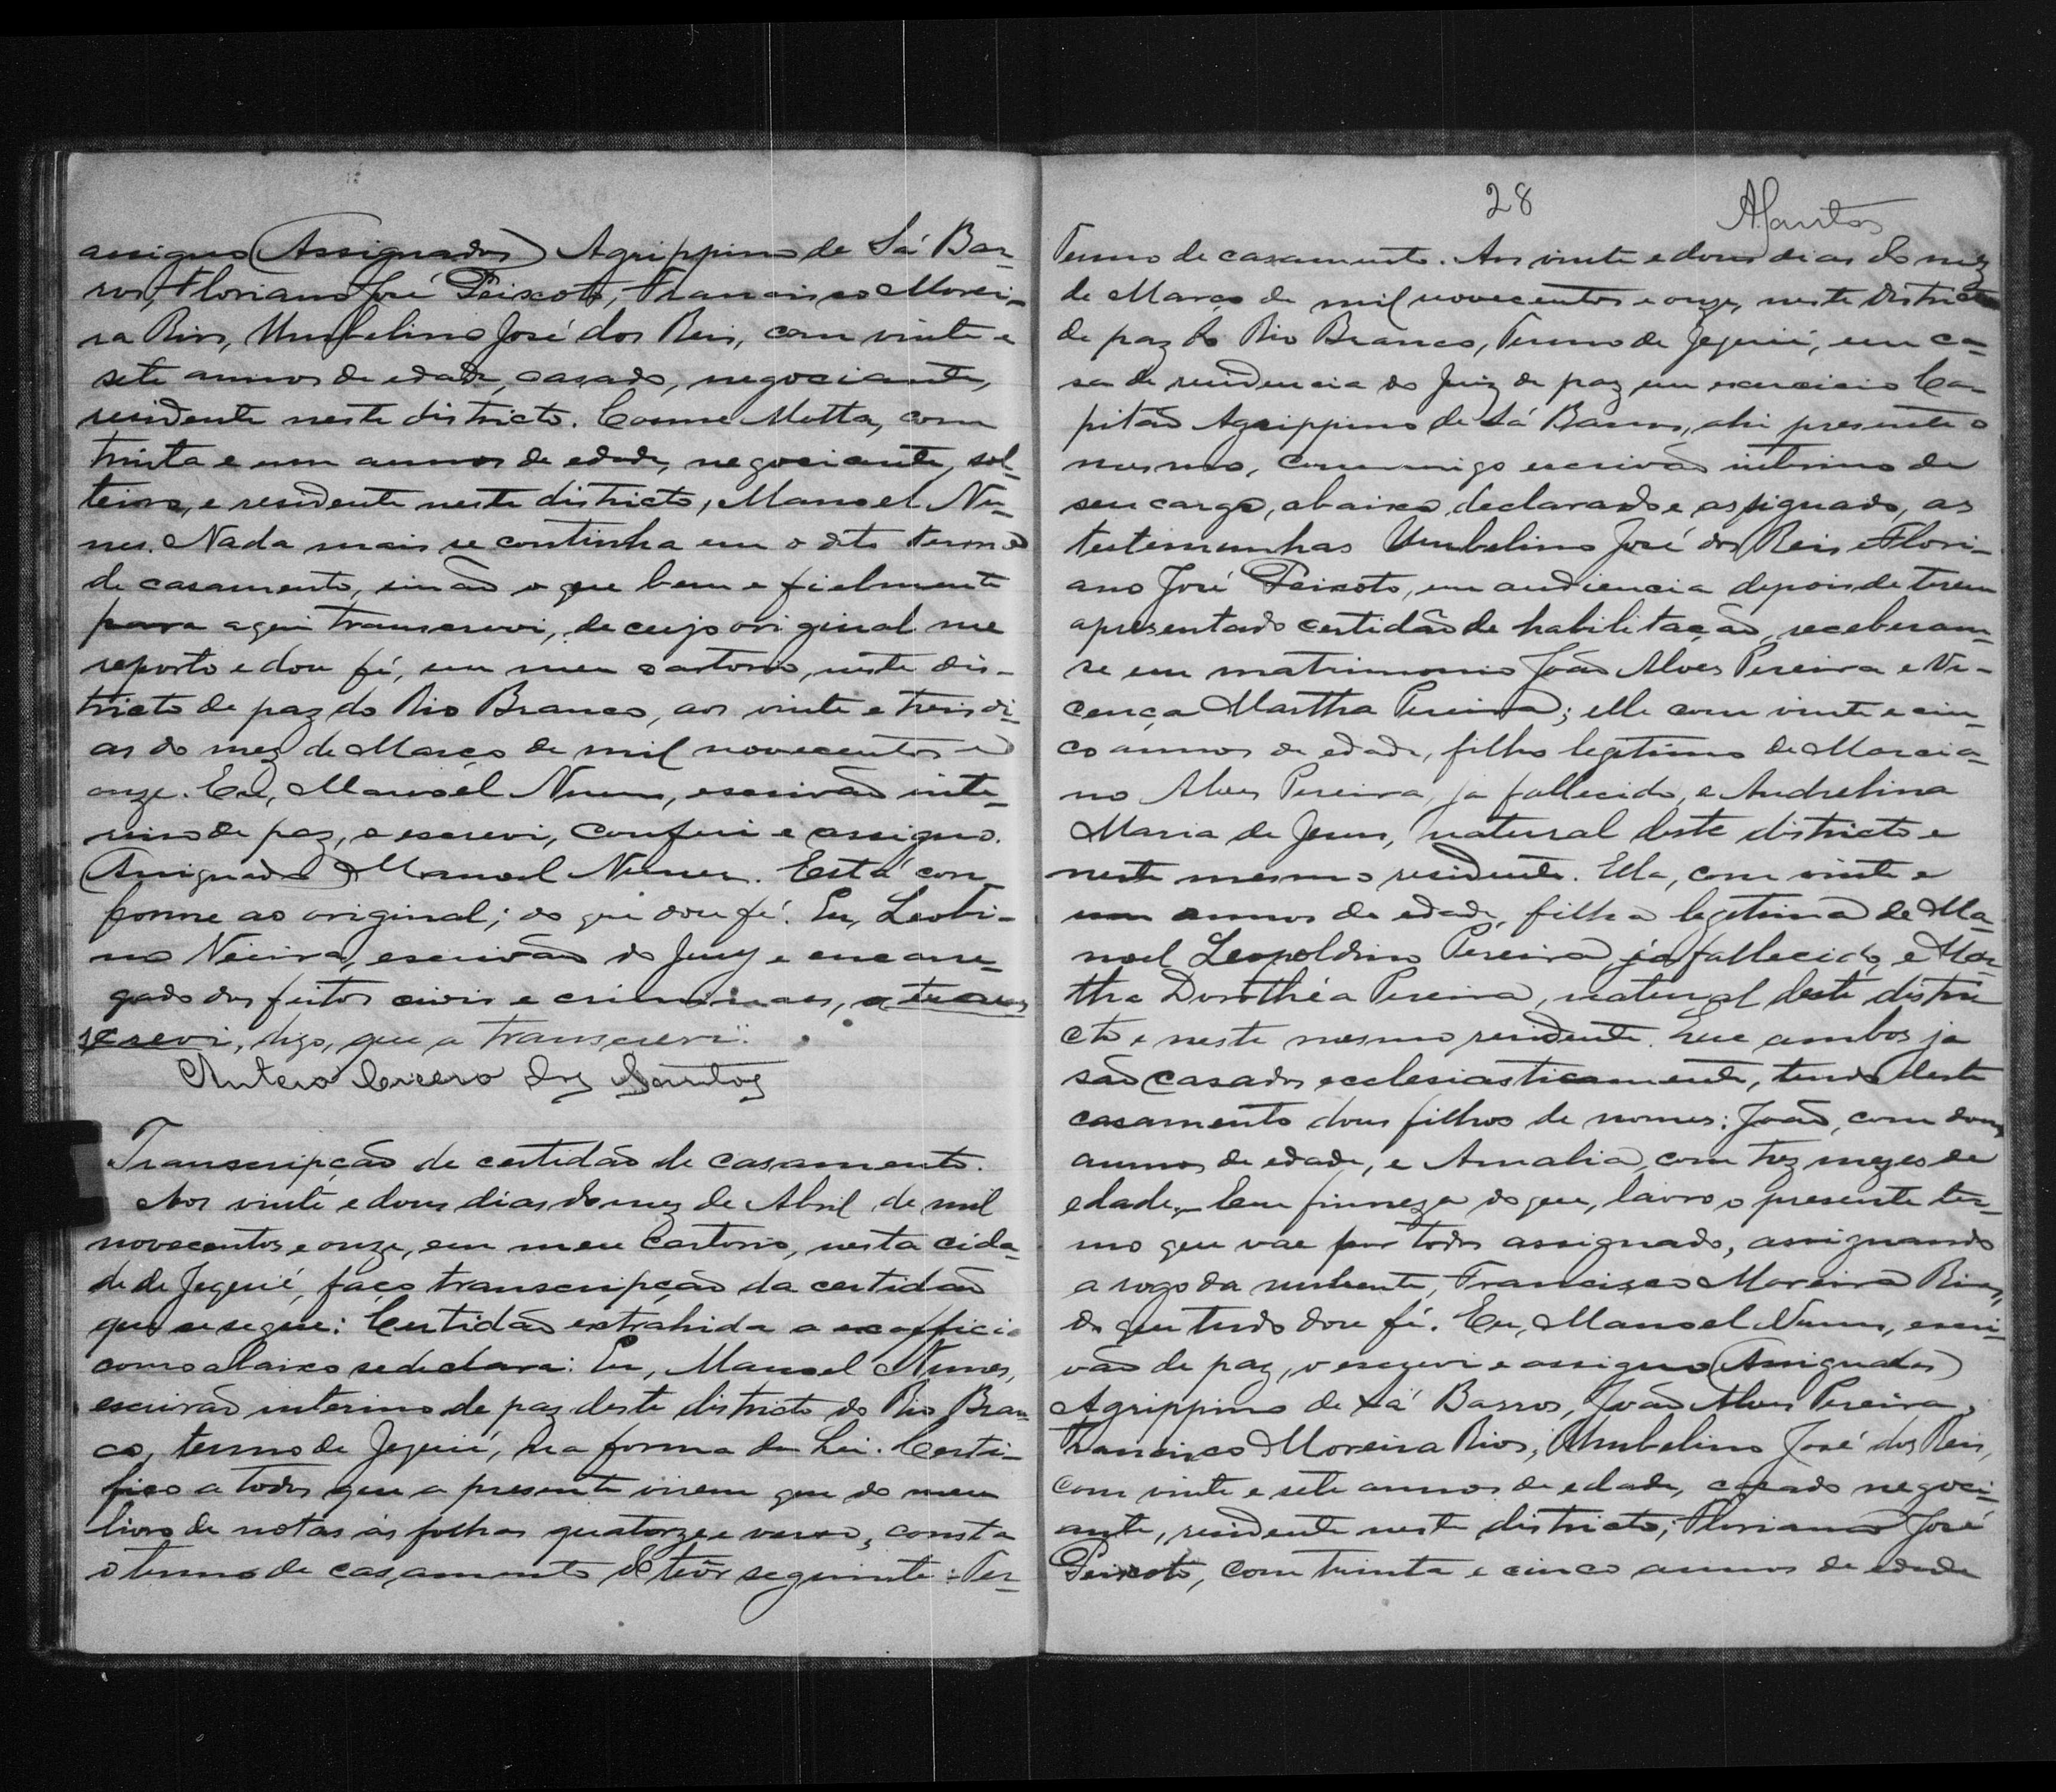 assigno (Assignados) Agrippino de Sá Bar-
ros, Floriano José Peixoto, Francisco Morei-
ra Rios, Umbelino José dos Reis, com vinte e
sete annos de edade, casado, negociante,
residente neste districto. Cosme Motta, com
trinta e um annos de edade, negociante, sol-
teiro, e residente neste districto, Manoel Nu-
nes. Nada mais se continha em o dito termo
de casamento, sinão o que bem e fielmente
para aqui transcrevi, de cujo original me
reporto e dou fé, em meu cartorio, neste dis-
tricto de paz do Rio Branco, aos vinte e tres di-
as do mez de Março de mil novecentos e
onze. Eu, Manoel Nunes, escrivão inte-
rino de paz, o escrevi, conferi e assigno.
(Assignado) Manoel Nunes. Está con-
forme ao original; do que dou fé. Eu, Leobi-
no Vieira, escrivão do Jury e encarre-
gado dos feitos civis e criminaes, a trans
screvi, digo, que a transcrevi.
Antero Cicero dos Santos
Transcripção de certidão de casamento.
Aos vinte e dous dias do mez de Abril de mil
novecentos e onze, em meu Cartorio, nesta cida-
de de Jequié, faço transcripção da certidão
que se segue: Certidão extrahida a ex-officio
como abaixo se declara: Eu, Manoel Nunes,
escrivão interino de paz deste districto do Rio Bran-
co, termo de Jequié, na forma da Lei. Certi-
fico a todos que a presente virem que do meu
livro de notas ás folhas quatorze e verso, consta
o termo de casamento do teôr seguinte: Ter-
28
ASantos
Termo de casamento. Aos vinte e dous dias do mez
de Março de mil novecentos e onze, neste districto
de paz do Rio Branco, Termo de Jequié, em ca-
sa de residencia do Juiz de paz em exercicio Ca-
pitão Agrippino de Sá Barros, ahi presente o
mesmo, commigo escrivão interino de
seu cargo, abaixo declarado e assignado, as
testemunhas Umbelino José dos Reis e Flori-
ano José Peixoto, em audiencia depois de terem
apresentado certidão de habilitação, receberam-
se em matrimonio João Alves Pereira e Vi-
cença Martha Pereira; elle com vinte e cin-
co annos de edade, filho legitimo de Marcia-
no Alves Pereira, ja fallecido, e Andrelina
Maria de Jesus, natural deste districto e
neste mesmo residente. Ella, com vinte e
um annos de edade, filha legitima de Ma-
noel Leopoldino Pereira, já fallecido, e Mar-
tha Dorothéa Pereira, natural deste distri
cto e neste mesmo residente. Que ambos ja
são casados ecclesiasticamente, tendo deste
casamento dous filhos de nomes: João, com dous
annos de edade, e Amalia, com trez mezes de
edade. Em firmeza do que, lavro o presente ter-
mo que vae por todos assignado, assignando
a rogo da nubente, Francisco Moreira Rios,
do que tudo dou fé. Eu, Manoel Nunes, escri-
vão de paz, o escrevi e assigno (Assignados)
Agrippino de Sá Barros, João Alves Pereira,
Francisco Moreira Rios, Umbelino José dos Reis,
com vinte e sete annos de edade, casado negoci-
ante, residente neste districto; Floriano José
Peixoto, com trinta e cinco annos de edade